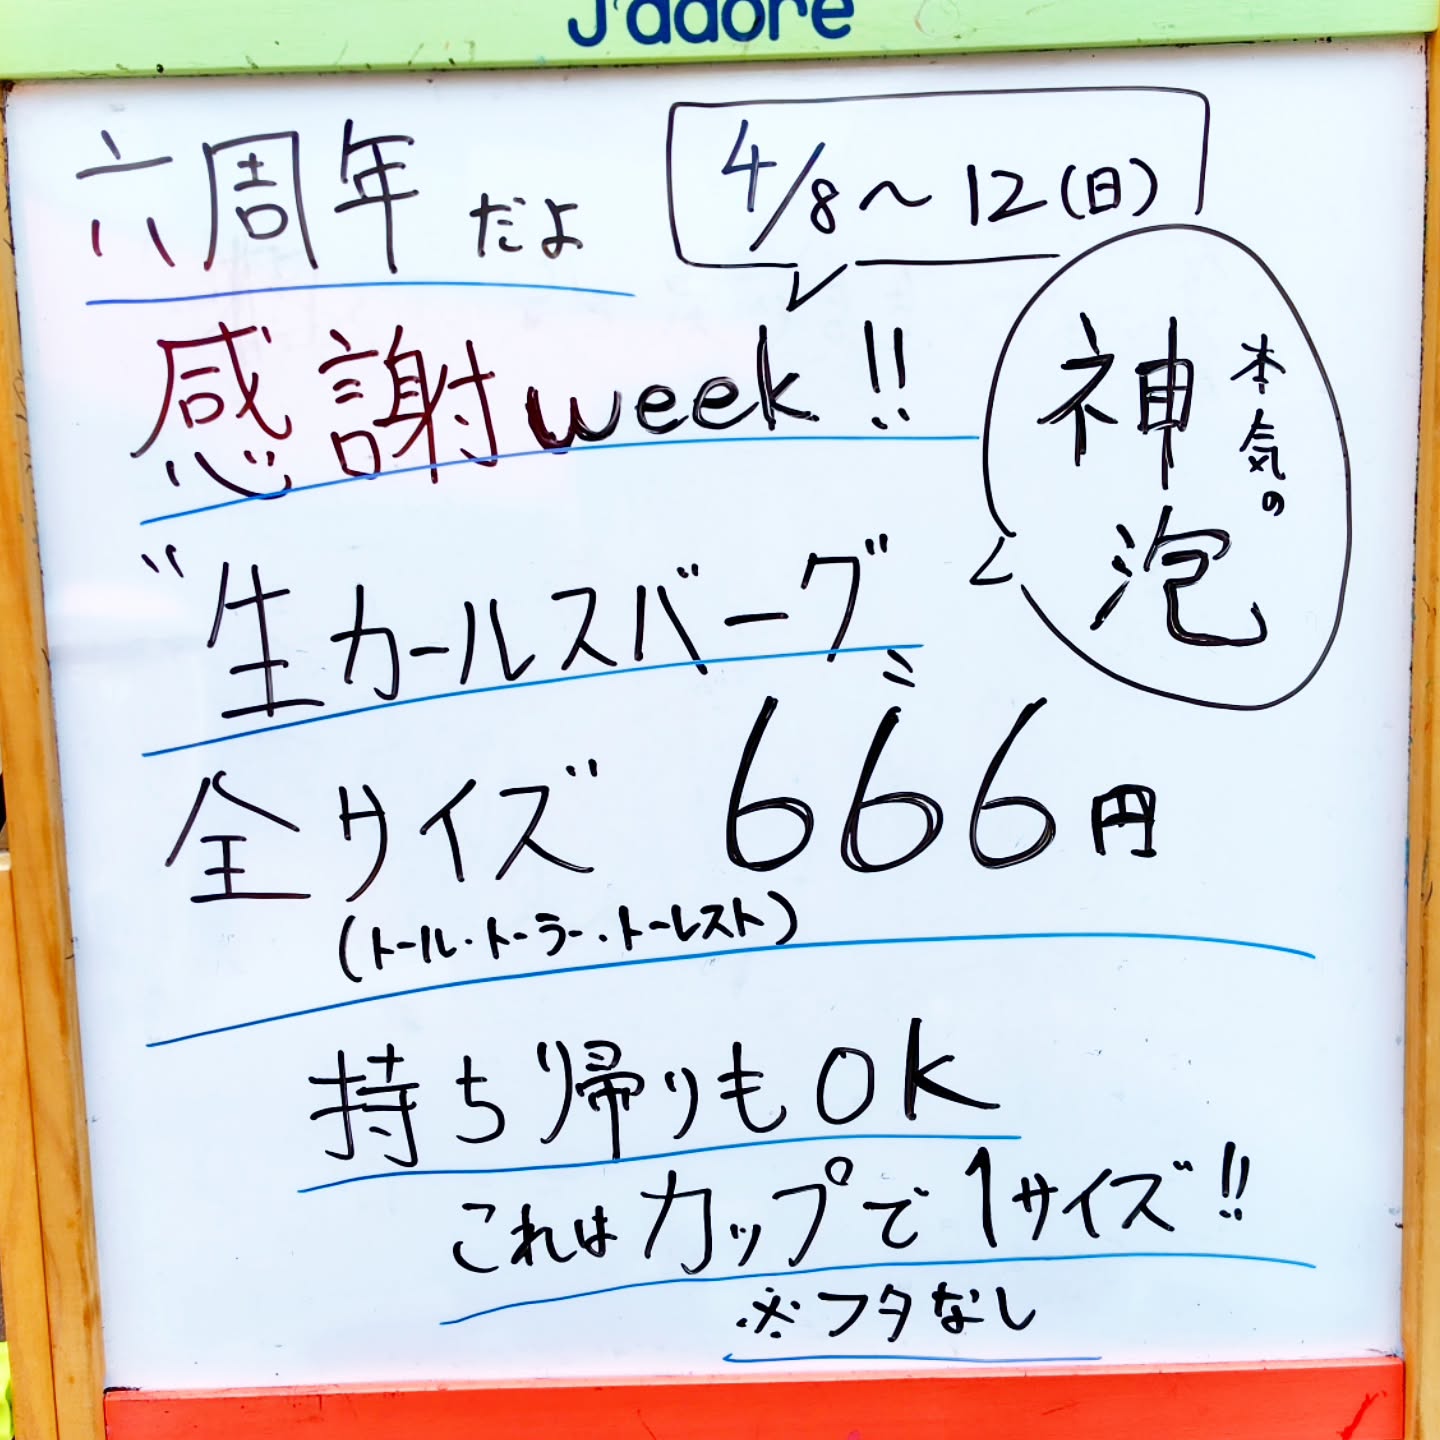 J'adore
六周年だよ
4/8〜12(日)
感謝week!!
本気の
神泡
"生カールスバーグ"
全サイズ 666円
(トール・トーラー・トーレスト)
持ち帰りもOK
これはカップで1サイズ!!
※フタなし